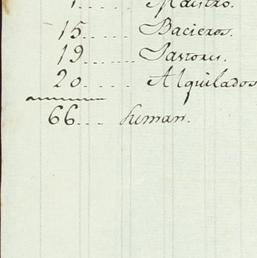 1..... Maestro.
15..... Bacieros.
19...... Pastores.
20..... Alquilados
66.... Suman.